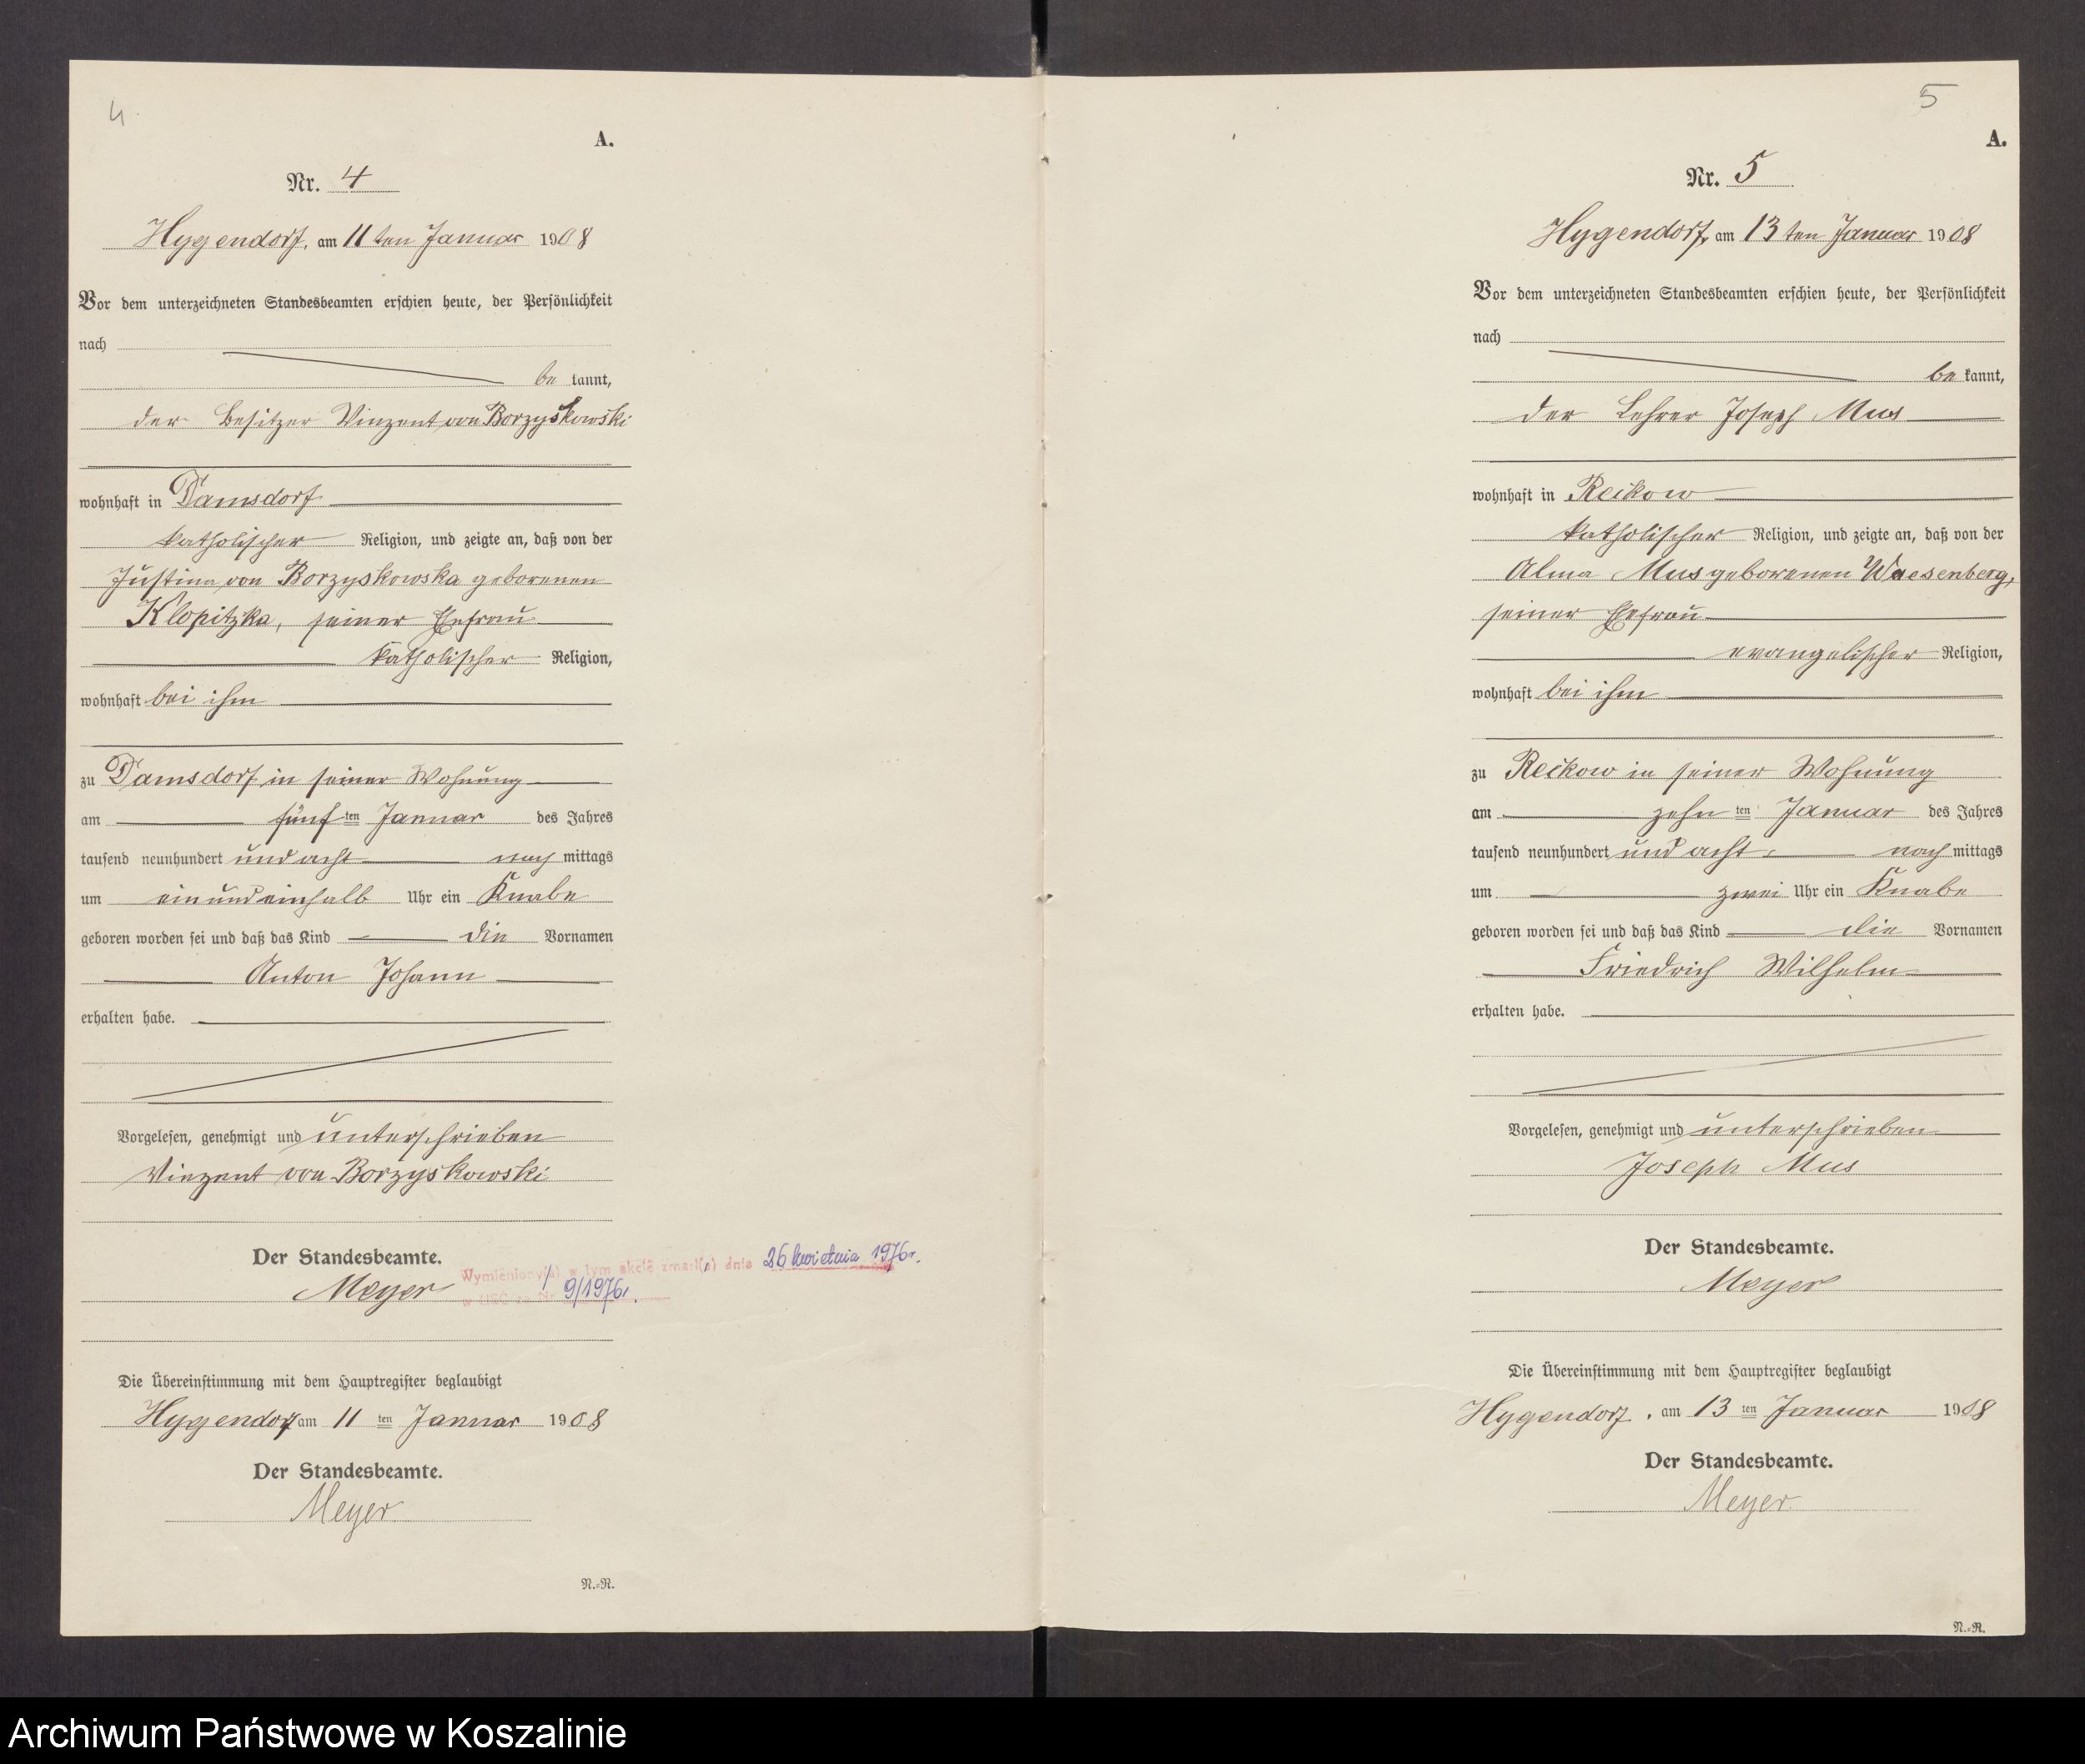 4
A.
Nr. 4
Hygendorf, am 11 ten Januar 1908
Vor dem unterzeichneten Standesbeamten erschien heute, der Persönlichkeit
nach
be kannt,
der Besitzer Vinzent von Borzyskowski
wohnhaft in Damsdorf
katholischer Religion, und zeigte an, daß von der
Justina von Borzyskowska geborenen
Klopitzka, seiner Ehefrau
katholischer Religion,
wohnhaft bei ihm
zu Damsdorf in seiner Wohnung
am fünf ten Januar des Jahres
tausend neunhundert und acht nach mittags
um ein und einhalb Uhr ein Knabe
geboren worden sei und daß das Kind die Vornamen
Anton Johann
erhalten habe.
Vorgelesen, genehmigt und unterschrieben
Vinzent von Borzyskowski
Der Standesbeamte.
Meyer
Wymieniony(a) w tym akcie zmarł(a) dnia 26 kwietnia 1976r.
w USC za Nr 9/1976r.
Die Übereinstimmung mit dem Hauptregister beglaubigt
Hygendorf am 11 ten Januar 1908
Der Standesbeamte.
Meyer
N.-R.
5
A.
Nr. 5
Hygendorf, am 13 ten Januar 1908
Vor dem unterzeichneten Standesbeamten erschien heute, der Persönlichkeit
nach
be kannt,
der Lehrer Joseph Mus
wohnhaft in Reckow
katholischer Religion, und zeigte an, daß von der
Alma Mus geborenen Waesenberg,
seiner Ehefrau
evangelischer Religion,
wohnhaft bei ihm
zu Reckow in seiner Wohnung
am zehn ten Januar des Jahres
tausend neunhundert und acht nach mittags
um zwei Uhr ein Knabe
geboren worden sei und daß das Kind die Vornamen
Friedrich Wilhelm
erhalten habe.
Vorgelesen, genehmigt und unterschrieben
Joseph Mus
Der Standesbeamte.
Meyer
Die Übereinstimmung mit dem Hauptregister beglaubigt
Hygendorf, am 13 ten Januar 1908
Der Standesbeamte.
Meyer
N.-R.
Archiwum Państwowe w Koszalinie